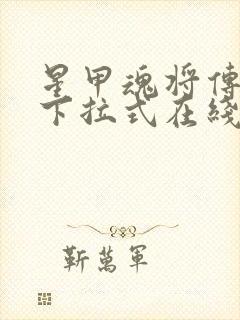 星甲魂将傳
下拉式在綫
靳萬軍